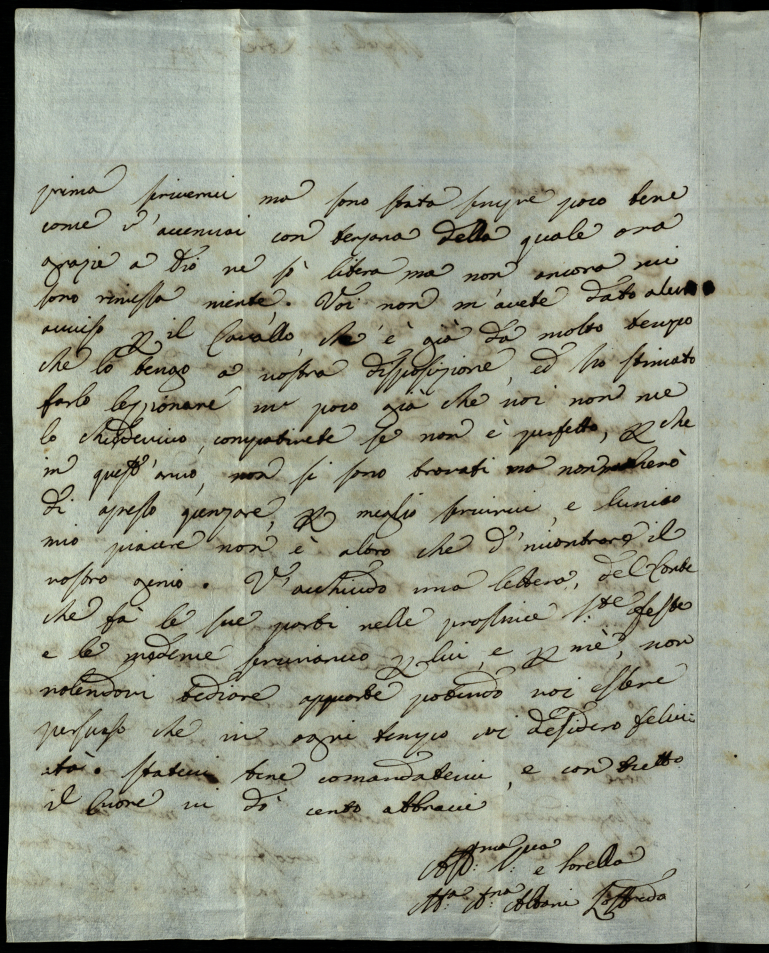 prima scrivervi ma sono stata sempre poco bene
come v'accennai con terzana della quale ora
grazie a Dio ne sò libera ma non ancora mi
sono rimessa niente. Voi non m'avete dato alcun
avviso p il Cavallo, che è già da molto tempo
che lo tengo a vostra disposizione, ed ho stimato
farlo lezzionare un poco già che voi non me
lo chiedevivo, compatirete se non è perfetto, p che
in quest'anno, non si sono trovati ma non
di apresso, p meglio servirvi, e l'unico
mio piacere non è altro che d'incontrare il
vostro genio. V'acchiudo una lettera, del Conte
che fà le sue parti nelle prossime S.te feste
e le medeme serviranno p lui, e p mè, non
volendovi tediare apparte potendo voi essere
persuaso che in ogni tempo vi desidero felici=
tà. statevi bene comandatemi, e con tutto
il Cuore vi dò cento abbracci
Aff.ma S.va e sorella
M.a A.na Albani